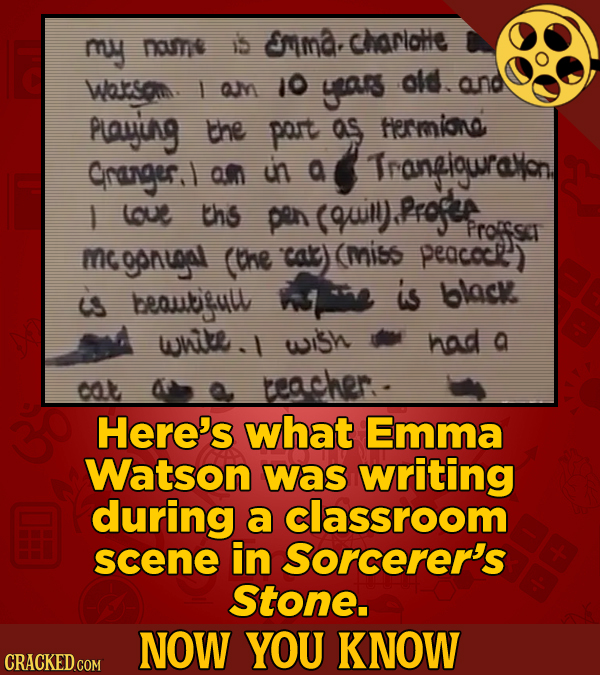 my name is Emma. charlotte
Watson. I am 10 years old. and
Playing the part as Hermione
Granger. I am in a Tranfiguration.
I love this pen (quill). Profer
Proffser
mcgonugal (the "cat) (miss peacock")
is beautifull is black
white. I wish had a
cat a teacher. -
Here's what Emma
Watson was writing
during a classroom
scene in Sorcerer's
Stone.
NOW YOU KNOW
CRACKED.COM